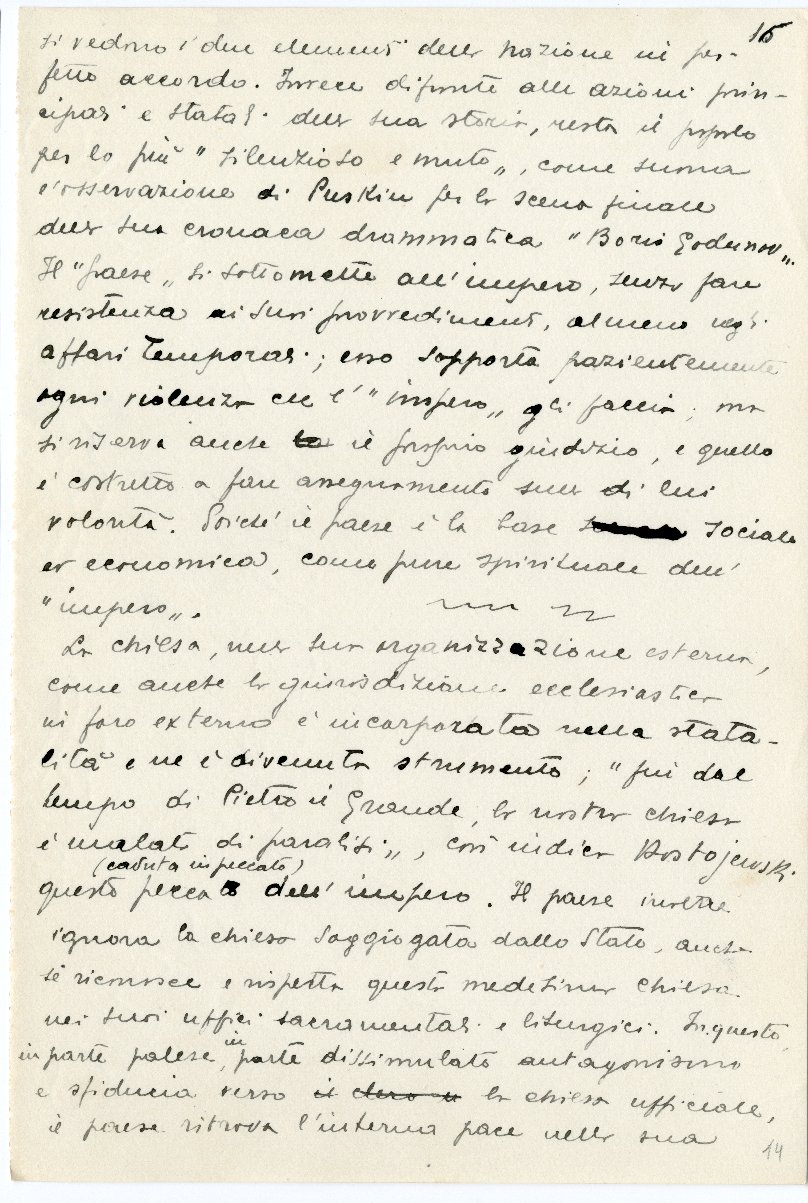 15
si vedono i due elementi della nazione in per-
fetto accordo. Invece difronte alle azioni prin-
cipali e statali della sua storia, resta il popolo
per lo più "silenzioso e muto„, come suona
l'osservazione di Puskin per la scena finale
della sua cronaca drammatica "Boris Godunov„.
Il "paese„ si sottomette all'impero, senza fare
resistenza ai suoi provvedimenti, almeno negli
affari temporali; esso sopporta pazientemente
ogni violenza che l'"impero„ gli faccia; ma
si riserva anche la il proprio giudizio, e quello
è costretto a fare assegnamento sulla di lui
volontà. Poiché il paese è la base sociale
ed economica, come pure spirituale dell'
"impero„.
La chiesa, nella sua organizzazione esterna,
come anche la giurisdizione ecclesiastica
in foro externo è incorporata nella stata-
lità e ne è divenuta strumento; "fin dal
tempo di Pietro il Grande, la nostra chiesa
è malata di paralisi„, così indica Dostojewski
(caduta in peccato)
questo peccato dell'impero. Il paese inoltre
ignora la chiesa soggiogata dallo Stato, anche
se riconosce e rispetta questa medesima chiesa
nei suoi uffici sacramentali e liturgici. In questo,
in parte palese, in parte dissimulato antagonismo
e sfiducia verso il clero u la chiesa ufficiale,
il paese ritrova l'interna pace nella sua
14